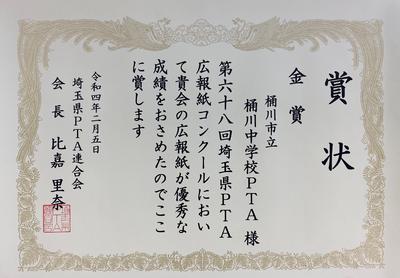 賞状
金賞
桶川市立
桶川中学校PTA 様
第六十八回埼玉県PTA
広報紙コンクールにおい
て貴会の広報紙が優秀な
成績をおさめたのでここ
に賞します
令和四年二月五日
埼玉県PTA連合会
会長 比嘉里奈